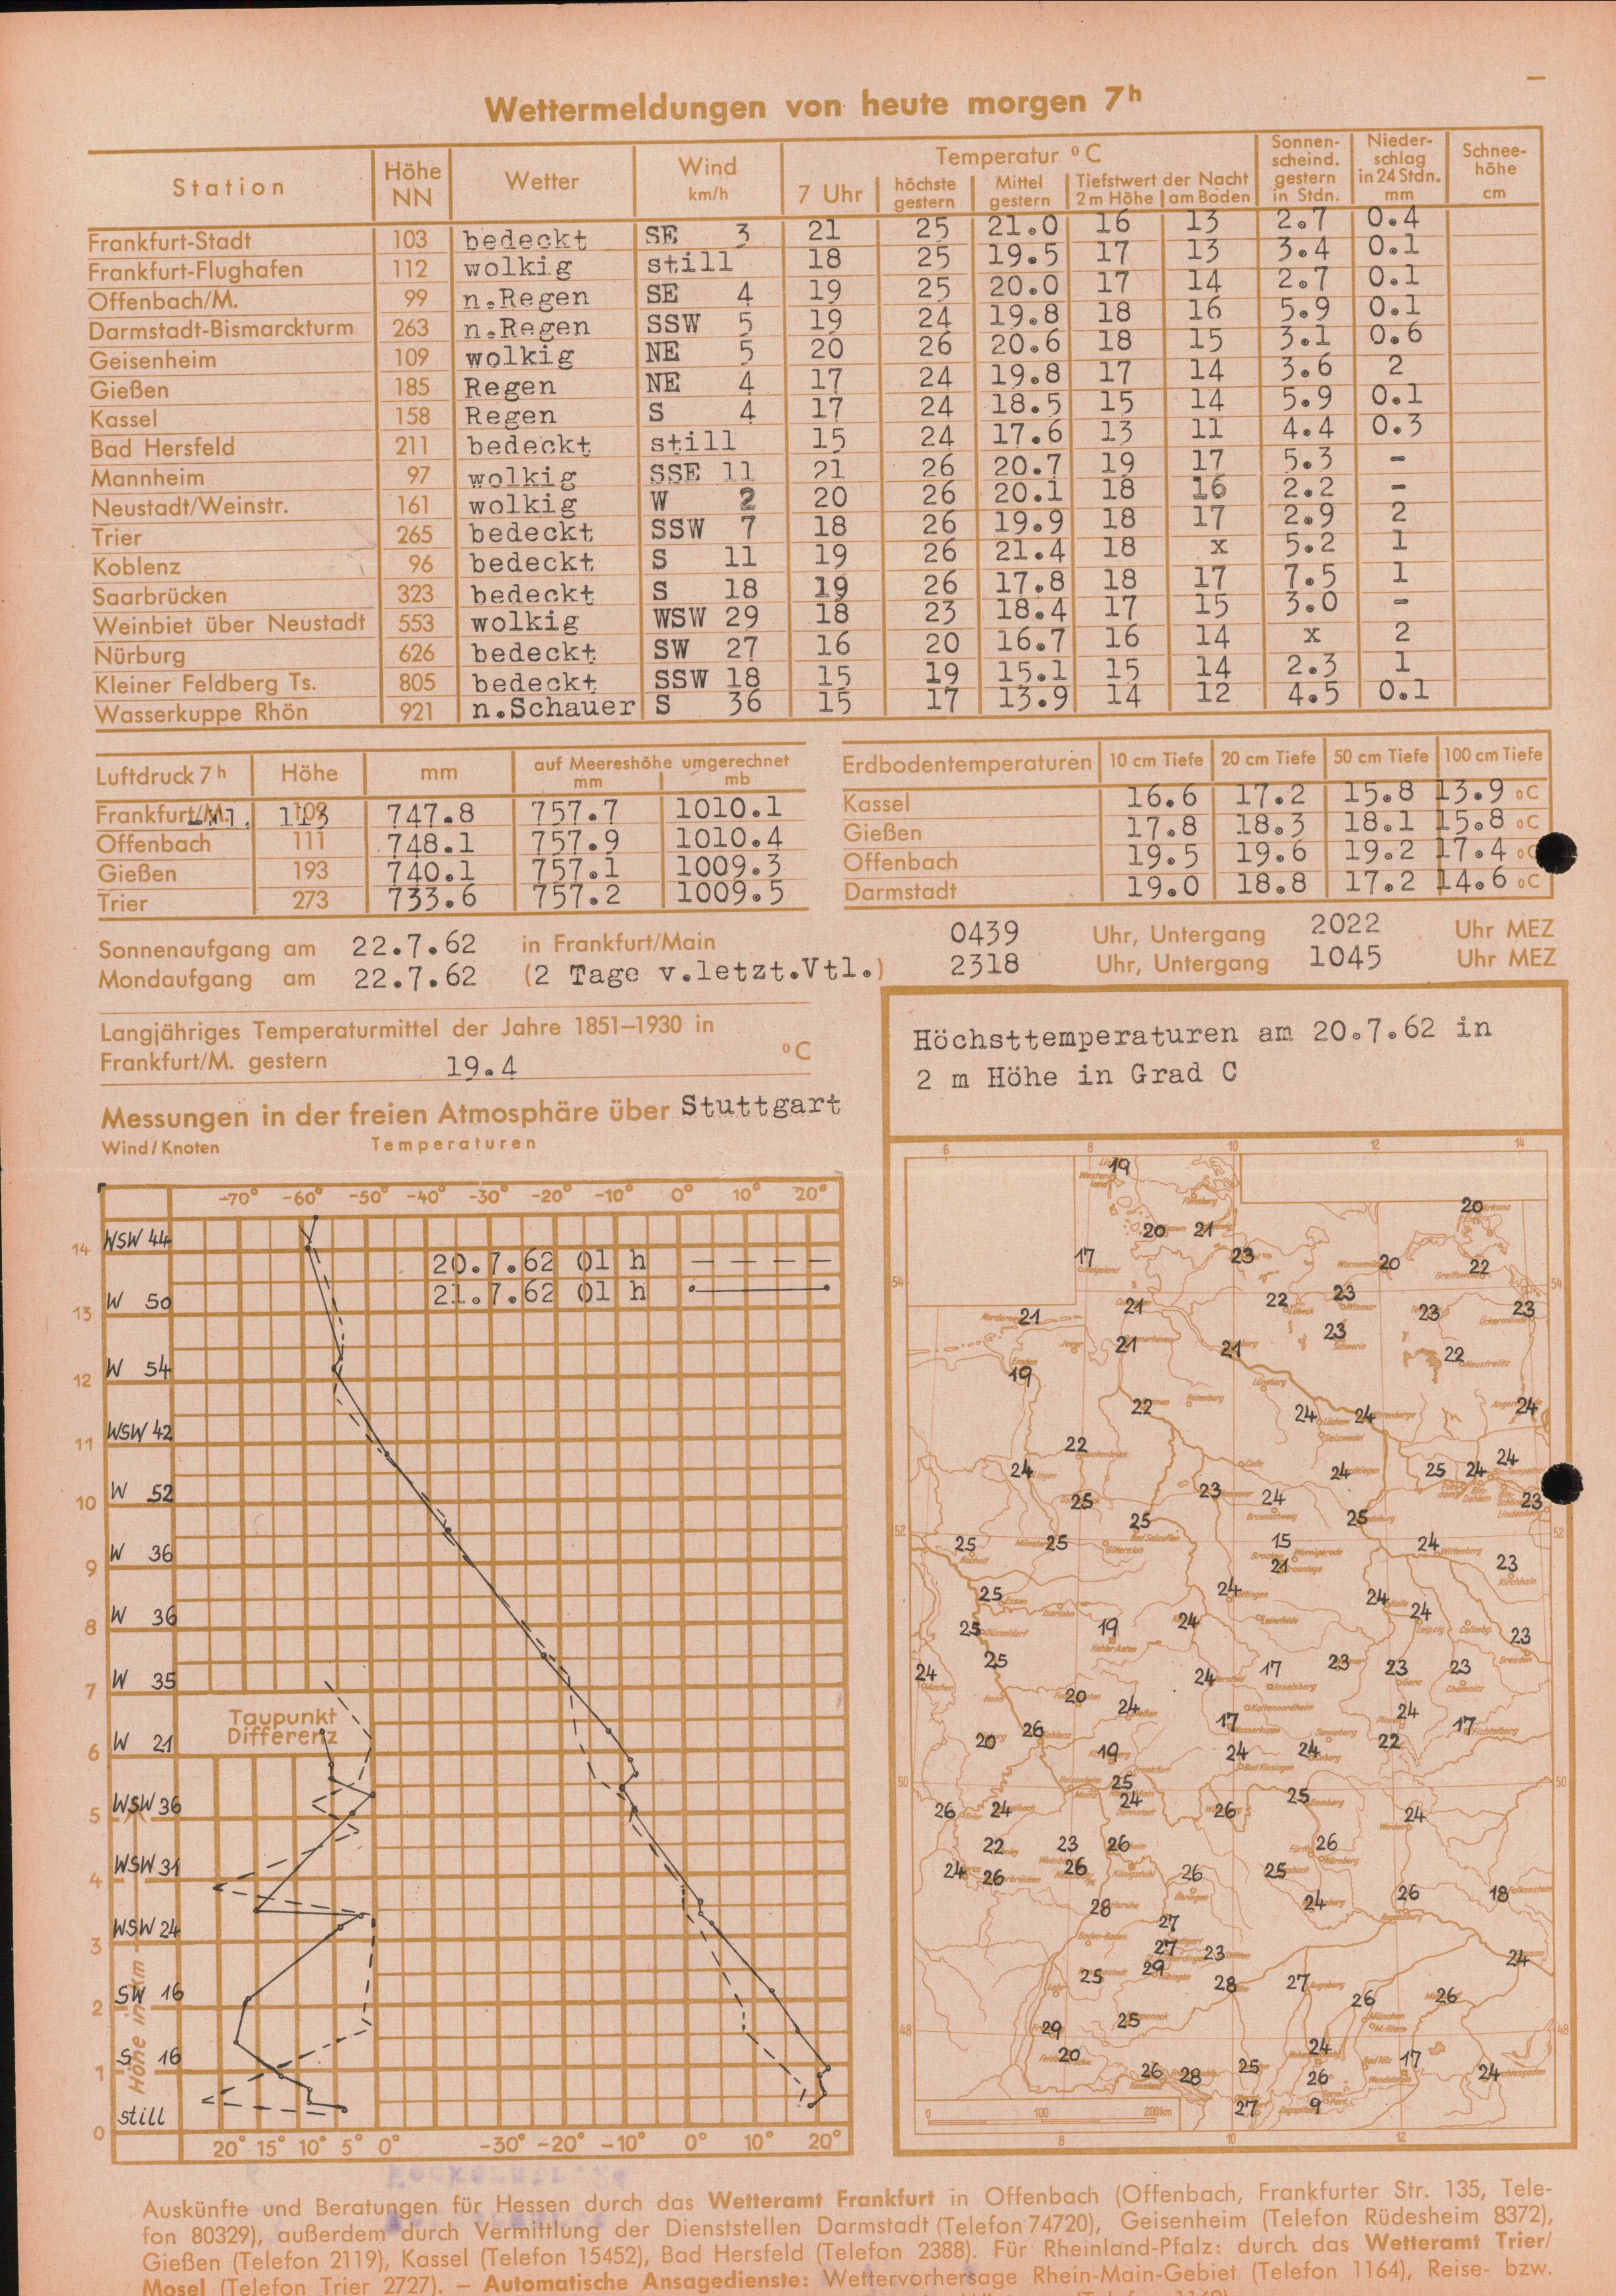 Wettermeldungen von heute morgen 7h
Station Höhe NN Wetter Wind km/h Temperatur °C Sonnenscheind. gestern in Stdn. Niederschlag in 24 Stdn. mm Schneehöhe cm
7 Uhr höchste gestern Mittel gestern Tiefstwert der Nacht 2 m Höhe am Boden
Frankfurt-Stadt 103 bedeckt SE 3 21 25 21.0 16 13 2.7 0.4
Frankfurt-Flughafen 112 wolkig still 18 25 19.5 17 13 3.4 0.1
Offenbach/M. 99 n.Regen SE 4 19 25 20.0 17 14 2.7 0.1
Darmstadt-Bismarckturm 263 n.Regen SSW 5 19 24 19.8 18 16 5.9 0.1
Geisenheim 109 wolkig NE 5 20 26 20.6 18 15 3.1 0.6
Gießen 185 Regen NE 4 17 24 19.8 17 14 3.6 2
Kassel 158 Regen S 4 17 24 18.5 15 14 5.9 0.1
Bad Hersfeld 211 bedeckt still 15 24 17.6 13 11 4.4 0.3
Mannheim 97 wolkig SSE 11 21 26 20.7 19 17 5.3 -
Neustadt/Weinstr. 161 wolkig W 2 20 26 20.1 18 16 2.2 -
Trier 265 bedeckt SSW 7 18 26 19.9 18 17 2.9 2
Koblenz 96 bedeckt S 11 19 26 21.4 18 x 5.2 1
Saarbrücken 323 bedeckt S 18 19 26 17.8 18 17 7.5 1
Weinbiet über Neustadt 553 wolkig WSW 29 18 23 18.4 17 15 3.0 -
Nürburg 626 bedeckt SW 27 16 20 16.7 16 14 x 2
Kleiner Feldberg Ts. 805 bedeckt SSW 18 15 19 15.1 15 14 2.3 1
Wasserkuppe Rhön 921 n.Schauer S 36 15 17 13.9 14 12 4.5 0.1
Luftdruck 7h Höhe mm auf Meereshöhe umgerechnet mm mb
Frankfurt/M. 113 747.8 757.7 1010.1
Offenbach 111 748.1 757.9 1010.4
Gießen 193 740.1 757.1 1009.3
Trier 273 733.6 757.2 1009.5
Erdbodentemperaturen 10 cm Tiefe 20 cm Tiefe 50 cm Tiefe 100 cm Tiefe
Kassel 16.6 17.2 15.8 13.9 °C
Gießen 17.8 18.3 18.1 15.8 °C
Offenbach 19.5 19.6 19.2 17.4 °C
Darmstadt 19.0 18.8 17.2 14.6 °C
Sonnenaufgang am 22.7.62 in Frankfurt/Main 0439 Uhr, Untergang 2022 Uhr MEZ
Mondaufgang am 22.7.62 (2 Tage v.letzt.Vtl.) 2318 Uhr, Untergang 1045 Uhr MEZ
Langjähriges Temperaturmittel der Jahre 1851–1930 in
Frankfurt/M. gestern 19.4 °C
Messungen in der freien Atmosphäre über Stuttgart
Wind/Knoten Temperaturen
-70° -60° -50° -40° -30° -20° -10° 0° 10° 20°
14 WSW 44
20.7.62 01 h
21.7.62 01 h
13 W 50
12 W 54
11 WSW 42
10 W 52
9 W 36
8 W 36
7 W 35
Taupunkt
Differenz
6 W 21
5 WSW 36
4 WSW 31
3 WSW 24
2 SW 16
1 S 16
0 still
Höhe in km
20° 15° 10° 5° 0° -30° -20° -10° 0° 10° 20°
Höchsttemperaturen am 20.7.62 in
2 m Höhe in Grad C
6 8 10 12 14
19
20
20 21
17 23 20 22
54 54
21 21 22 23 23 23
21 21 23 22
19
22 24 24 24
22
24 24 25 24 24
25 23 24 23
25 25
52 52
25 25 15 24
21 23
25 24 24 24
25 19 24 23
25
24 24 17 23 23 23
20 24 24
26 17 17
20 19 24 24 22
50 50
25
26 24 24 26 25 24
22 23 26 26
24 26 26 26 25
28 24 26 18
27
27 23 24
25 29 28 27 26 26
48 48
29 25
20 24 17
26 28 25 26 24
27 9
0 100 200 km
8 10 12
Auskünfte und Beratungen für Hessen durch das Wetteramt Frankfurt in Offenbach (Offenbach, Frankfurter Str. 135, Tele-
fon 80329), außerdem durch Vermittlung der Dienststellen Darmstadt (Telefon 74720), Geisenheim (Telefon Rüdesheim 8372),
Gießen (Telefon 2119), Kassel (Telefon 15452), Bad Hersfeld (Telefon 2388). Für Rheinland-Pfalz: durch das Wetteramt Trier/
Mosel (Telefon Trier 2727). – Automatische Ansagedienste: Wettervorhersage Rhein-Main-Gebiet (Telefon 1164), Reise- bzw.